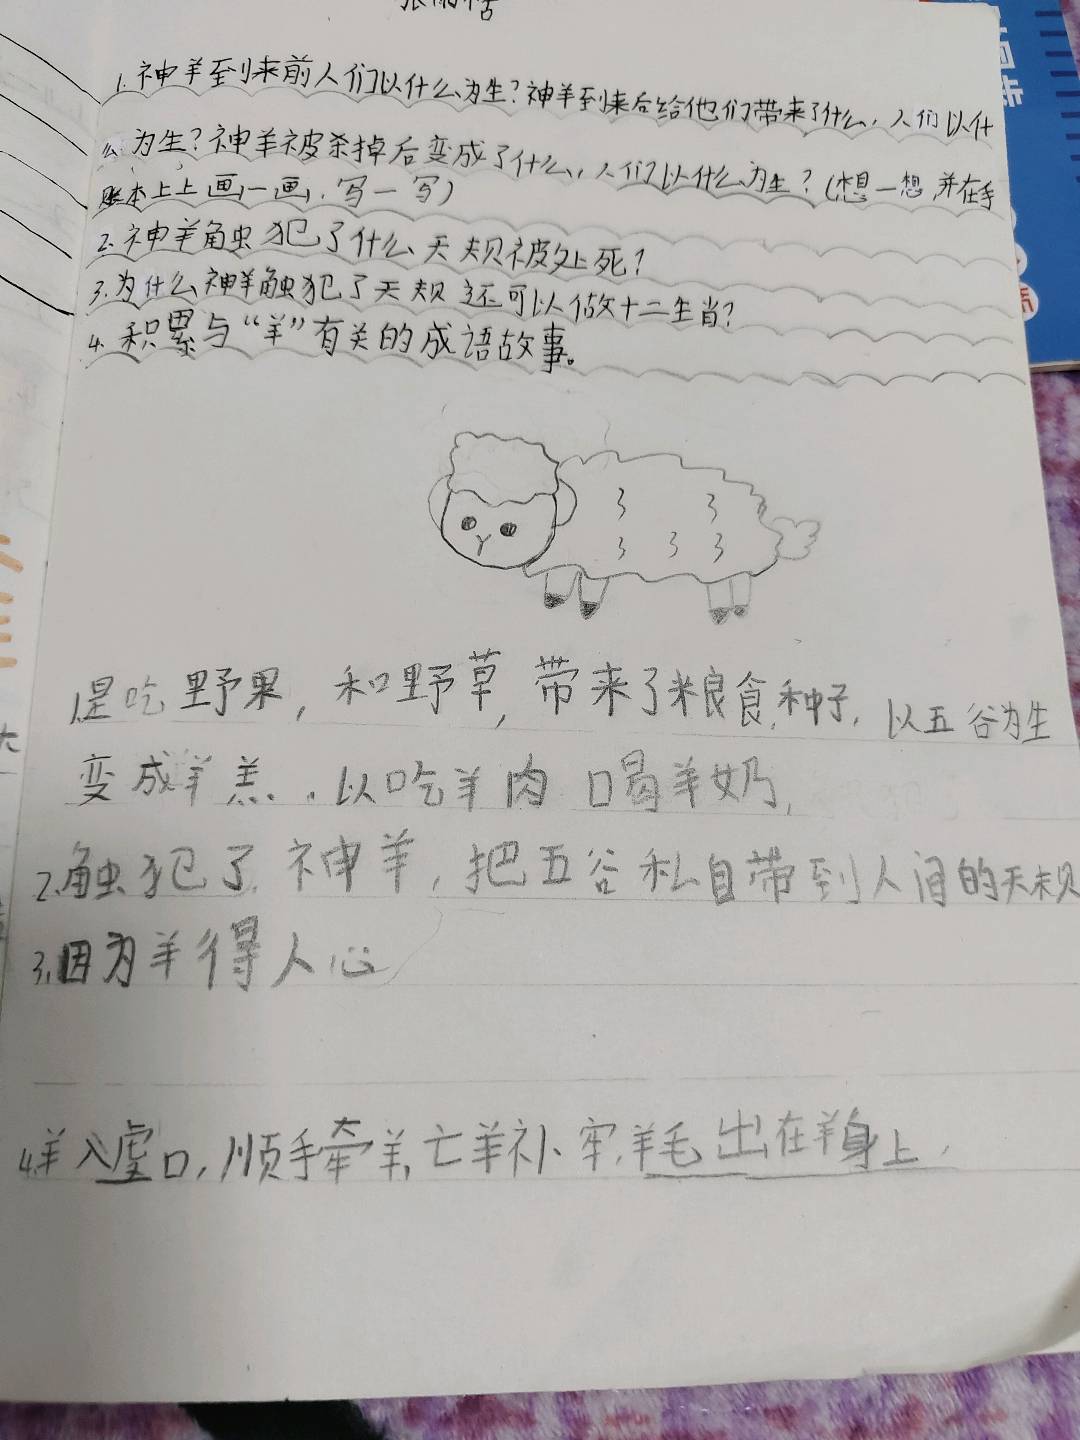 1.神羊到来前人们以什么为生?神羊到来后给他们带来了什么,人们以什
么为生?神羊被杀掉后变成了什么,人们以什么为生?(想一想,并在手
账本上上画一画,写一写)
2.神羊触犯了什么天规被处死?
3.为什么神羊触犯了天规还可以做十二生肖?
4.积累与“羊”有关的成语故事。
1.是吃野果,和野草,带来了粮食,种子,以五谷为生
变成羊羔,以吃羊肉 喝羊奶,
2.触犯了,神羊,把五谷私自带到人间的天规
3.因为羊得人心
4.羊入虚口,顺手牵羊,亡羊补牢,羊毛出在羊身上,